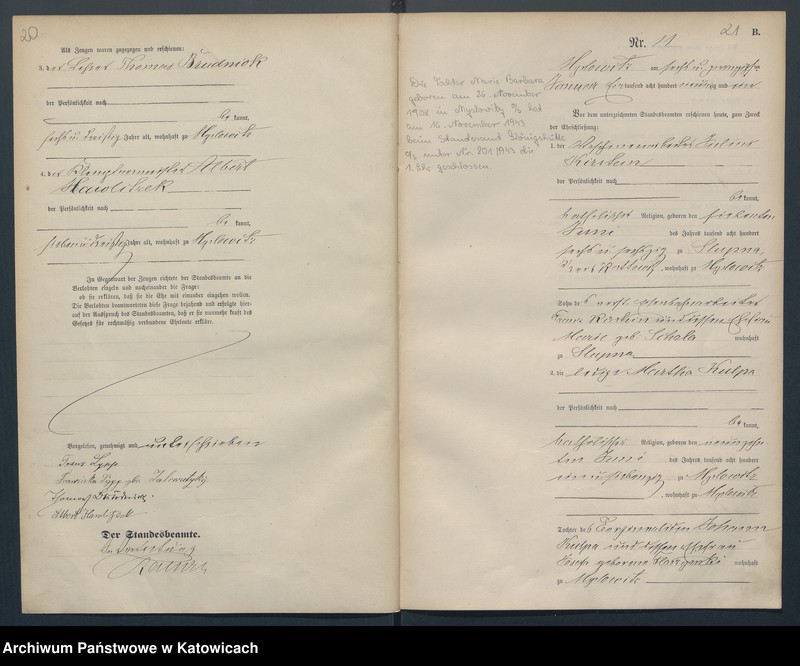 20
Als Zeugen waren zugezogen und erschienen:
3. der Lehrer Thomas Brudniok
der Persönlichkeit nach
be kannt,
sechs u. dreißig Jahre alt, wohnhaft zu Myslowitz
4. der Klempnermeister Albert
Hawlitzek
der Persönlichkeit nach
be kannt,
sieben u. dreißig Jahre alt, wohnhaft zu Myslowitz
In Gegenwart der Zeugen richtete der Standesbeamte an die
Verlobten einzeln und nacheinander die Frage:
ob sie erklären, daß sie die Ehe mit einander eingehen wollen.
Die Verlobten beantworteten diese Frage bejahend und erfolgte hier-
auf der Ausspruch des Standesbeamten, daß er sie nunmehr kraft des
Gesetzes für rechtmäßig verbundene Eheleute erkläre.
Vorgelesen, genehmigt und unterschrieben
Franz
Franziska geb.
Thomas Brudniok.
Albert Hawlitzek
Der Standesbeamte.
In Vertretung
21
B.
Nr. 11
Myslowitz am sechs u. zwanzigsten
Januar eintausend acht hundert neunzig und ein
Vor dem unterzeichneten Standesbeamten erschienen heute, zum Zweck
der Eheschließung:
1. der
der Persönlichkeit nach
be kannt,
katholischer Religion, geboren den siebenten
Juni des Jahres tausend acht hundert
sechs u. sechzig zu Slupna,
Kreis Kattowitz, wohnhaft zu Myslowitz
Sohn des
Franz und dessen Ehefrau
Marie geb. wohnhaft
zu Slupna
2. die ledige Martha Kulpa
der Persönlichkeit nach
be kannt,
katholischer Religion, geboren den neunzehn
ten Juni des Jahres tausend acht hundert
ein u. siebenzig zu Myslowitz
, wohnhaft zu Myslowitz
Tochter des Berginvaliden Johann
Kulpa und dessen Ehefrau
Josefa geborene wohnhaft
zu Myslowitz
Die Tochter Marie Barbara
geboren am 26. November
1908 in Myslowitz O/S hat
am 16. November 1943
beim Standesamt Königshütte
O/S unter Nr. 801/1943 die
1. Ehe geschlossen.
Archiwum Państwowe w Katowicach